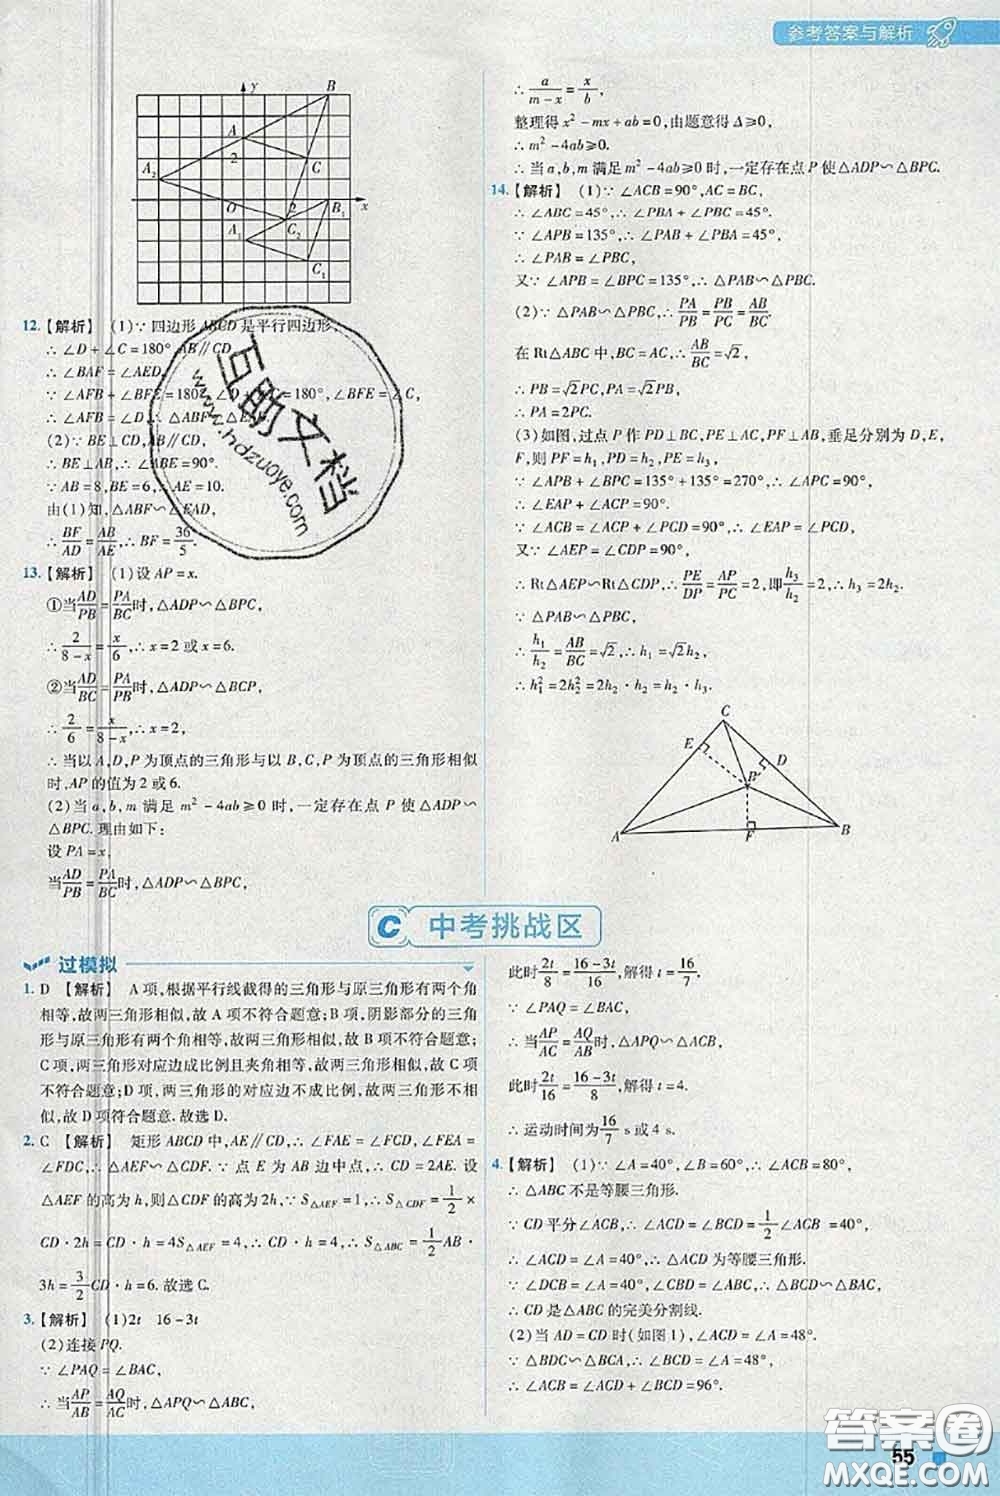 参考答案与解析
y
B
A
2
C
A₂
O
2
B₁
x
A₁
C₂
C₁
12.【解析】 (1)∵ 四边形 ABCD 是平行四边形,
∴ ∠D + ∠C = 180°, AB∥CD,
∴ ∠BAF = ∠AED,
∵ ∠AFB + ∠BFE = 180°, ∠D + ∠C = 180°, ∠BFE = ∠C,
∴ ∠AFB = ∠D, ∴ △ABF∽△EAD.
(2)∵ BE⊥CD, AB∥CD,
∴ BE⊥AB, ∴ ∠ABE = 90°.
∵ AB = 8, BE = 6, ∴ AE = 10.
由(1)知, △ABF∽△EAD,
∴ BF/AD = AB/AE, ∴ BF = 36/5.
13.【解析】 (1)设 AP = x.
①当AD/PB = PA/BC时, △ADP∽△BPC,
∴ 2/(8-x) = x/6, ∴ x = 2 或 x = 6.
②当AD/BC = PA/PB时, △ADP∽△BCP,
∴ 2/6 = x/(8-x), ∴ x = 2,
∴ 当以 A,D,P 为顶点的三角形与以 B,C,P 为顶点的三角形相似
时,AP 的值为 2 或 6.
(2)当 a,b,m 满足 m² - 4ab ⩾ 0 时,一定存在点 P 使△ADP∽
△BPC. 理由如下:
设 PA = x,
当AD/PB = PA/BC时, △ADP∽△BPC,
∴ a/(m-x) = x/b,
整理得 x² - mx + ab = 0,由题意得 Δ⩾0,
∴ m² - 4ab⩾0.
∴ 当 a,b,m 满足 m² - 4ab⩾0 时,一定存在点 P 使△ADP∽△BPC.
14.【解析】 (1)∵ ∠ACB = 90°, AC = BC,
∴ ∠ABC = 45°, ∴ ∠PBA + ∠PBC = 45°.
∵ ∠APB = 135°, ∴ ∠PAB + ∠PBA = 45°,
∴ ∠PAB = ∠PBC,
又∵ ∠APB = ∠BPC = 135°, ∴ △PAB∽△PBC.
(2)∵ △PAB∽△PBC, ∴ PA/PB = PB/PC = AB/BC.
在 Rt△ABC 中, BC = AC, ∴ AB/BC = √2,
∴ PB = √2PC, PA = √2PB,
∴ PA = 2PC.
(3)如图,过点 P 作 PD⊥BC,PE⊥AC,PF⊥AB,垂足分别为 D,E,
F,则 PF = h₁, PD = h₂, PE = h₃,
∵ ∠APB + ∠BPC = 135° + 135° = 270°, ∴ ∠APC = 90°,
∴ ∠EAP + ∠ACP = 90°.
∵ ∠ACB = ∠ACP + ∠PCD = 90°, ∴ ∠EAP = ∠PCD,
又∵ ∠AEP = ∠CDP = 90°,
∴ Rt△AEP∽Rt△CDP, ∴ PE/DP = AP/PC = 2, 即h₃/h₂ = 2, ∴ h₃ = 2h₂.
∵ △PAB∽△PBC,
∴ h₁/h₂ = AB/BC = √2, ∴ h₁ = √2h₂,
∴ h₁² = 2h₂² = 2h₂ · h₂ = h₂h₃.
C
E
D
P
A
F
B
C 中考挑战区
过模拟
1. D 【解析】 A 项,根据平行线截得的三角形与原三角形有两个角
相等,故两三角形相似,故 A 项不符合题意;B 项,阴影部分的三角
形与原三角形有两个角相等,故两三角形相似,故 B 项不符合题意;
C 项,两三角形对应边成比例且夹角相等,故两三角形相似,故 C 项
不符合题意;D 项,两三角形的对应边不成比例,故两三角形不相
似,故 D 项符合题意. 故选 D.
2. C 【解析】 矩形 ABCD 中, AE∥CD, ∴ ∠FAE = ∠FCD, ∠FEA =
∠FDC, ∴ △AEF∽△CDF. ∵ 点 E 为 AB 边中点, ∴ CD = 2AE. 设
△AEF 的高为 h,则△CDF 的高为 2h, ∵ S△AEF = 1, ∴ S△CDF = 1/2 ×
CD · 2h = CD · h = 4S△AEF = 4, ∴ CD · h = 4, ∴ S△ABC = 1/2 AB ·
3h = 3/2 CD · h = 6. 故选 C.
3.【解析】 (1)2t 16 - 3t
(2)连接 PQ.
∵ ∠PAQ = ∠BAC,
∴ 当AP/AB = AQ/AC时, △APQ∽△ABC,
此时2t/8 = (16-3t)/16, 解得 t = 16/7.
∵ ∠PAQ = ∠BAC,
∴ 当AP/AC = AQ/AB时, △APQ∽△ACB,
此时2t/16 = (16-3t)/8, 解得 t = 4.
∴ 运动时间为16/7 s或 4 s.
4.【解析】 (1)∵ ∠A = 40°, ∠B = 60°, ∴ ∠ACB = 80°,
∴ △ABC 不是等腰三角形.
∵ CD 平分∠ACB, ∴ ∠ACD = ∠BCD = 1/2∠ACB = 40°,
∴ ∠ACD = ∠A = 40°, ∴ △ACD 为等腰三角形.
∵ ∠DCB = ∠A = 40°, ∠CBD = ∠ABC, ∴ △BCD∽△BAC,
∴ CD 是△ABC 的完美分割线.
(2)当 AD = CD 时(如图 1), ∠ACD = ∠A = 48°.
∵ △BDC∽△BCA, ∴ ∠BCD = ∠A = 48°,
∴ ∠ACB = ∠ACD + ∠BCD = 96°.
55
互助文档
www.hdzuoye.com
答案圈
MXQE.COM